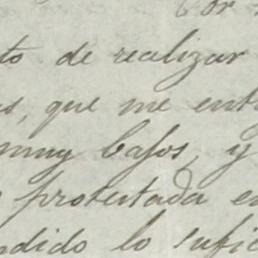 por
to de realizar
s, que me ent
muy bajos, y
protestada e
ndido lo sufic